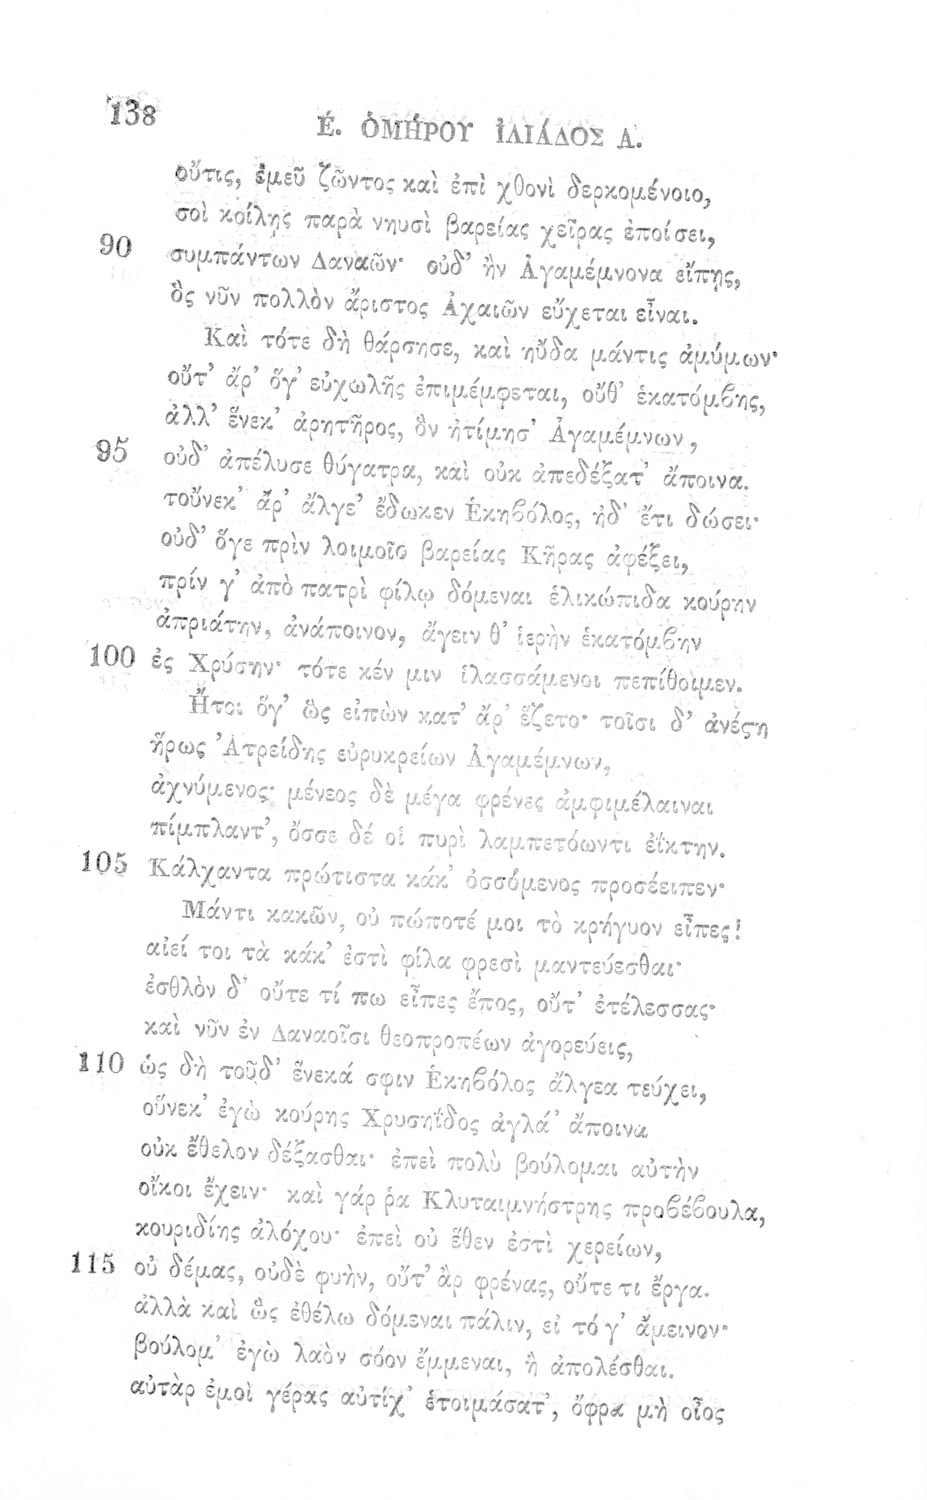 138
Ε. ὉΜΗΡΟΥ ἸΛΙΆΔΟΣ Α.
οὔτις, ἐμεῦ ζῶντος καὶ ἐπὶ χθονὶ δερκομένοιο,
σοὶ κοίλῃς παρὰ νηυσὶ βαρείας χεῖρας ἐποίσει,
90 συμπάντων Δαναῶν· οὐδ’ ἢν Ἀγαμέμνονα εἴπῃς,
ὃς νῦν πολλὸν ἄριστος Ἀχαιῶν εὔχεται εἶναι.
Καὶ τότε δὴ θάρσησε, καὶ ηὔδα μάντις ἀμύμων·
οὔτ’ ἄρ’ ὅγ’ εὐχωλῆς ἐπιμέμφεται, οὔθ’ ἑκατόμϐης,
ἀλλ’ ἕνεκ’ ἀρητῆρος, ὃν ἠτίμησ’ Ἀγαμέμνων,
95 οὐδ’ ἀπέλυσε θύγατρα, καὶ οὐκ ἀπεδέξατ’ ἄποινα.
τοὔνεκ’ ἄρ’ ἄλγε’ ἔδωκεν Ἑκηϐόλος, ἠδ’ ἔτι δώσει·
οὐδ’ ὅγε πρὶν λοιμοῖο βαρείας Κῆρας ἀφέξει,
πρίν γ’ ἀπὸ πατρὶ φίλῳ δόμεναι ἑλικώπιδα κούρην
ἀπριάτην, ἀνάποινον, ἄγειν θ’ ἱερὴν ἑκατόμϐην
100 ἐς Χρύσην· τότε κέν μιν ἱλασσάμενοι πεπίθοιμεν.
Ἤτοι ὅγ’ ὣς εἰπὼν κατ’ ἄρ’ ἕζετο· τοῖσι δ’ ἀνέϛη
ἥρως Ἀτρείδης εὐρυκρείων Ἀγαμέμνων,
ἀχνύμενος· μένεος δὲ μέγα φρένες ἀμφιμέλαιναι
πίμπλαντ’, ὄσσε δέ οἱ πυρὶ λαμπετόωντι ἐΐκτην.
105 Κάλχαντα πρώτιστα κάκ’ ὀσσόμενος προσέειπεν·
Μάντι κακῶν, οὐ πώποτέ μοι τὸ κρήγυον εἶπες!
αἰεί τοι τὰ κάκ’ ἐστὶ φίλα φρεσὶ μαντεύεσθαι·
ἐσθλὸν δ’ οὔτε τί πω εἶπες ἔπος, οὔτ’ ἐτέλεσσας·
καὶ νῦν ἐν Δαναοῖσι θεοπροπέων ἀγορεύεις,
110 ὡς δὴ τοῦδ’ ἕνεκά σφιν Ἑκηϐόλος ἄλγεα τεύχει,
οὕνεκ’ ἐγὼ κούρης Χρυσηΐδος ἀγλά’ ἄποινα
οὐκ ἔθελον δέξασθαι· ἐπεὶ πολὺ βούλομαι αὐτὴν
οἴκοι ἔχειν· καὶ γάρ ῥα Κλυταιμνήστρης προϐέϐουλα,
κουριδίης ἀλόχου· ἐπεὶ οὔ ἕθεν ἐστὶ χερείων,
115 οὐ δέμας, οὐδὲ φυὴν, οὔτ’ ἂρ φρένας, οὔτε τι ἔργα.
ἀλλὰ καὶ ὣς ἐθέλω δόμεναι πάλιν, εἰ τό γ’ ἄμεινον·
βούλομ’ ἐγὼ λαὸν σόον ἔμμεναι, ἢ ἀπολέσθαι.
αὐτὰρ ἐμοὶ γέρας αὐτίχ’ ἑτοιμάσατ’, ὄφρα μὴ οἶος